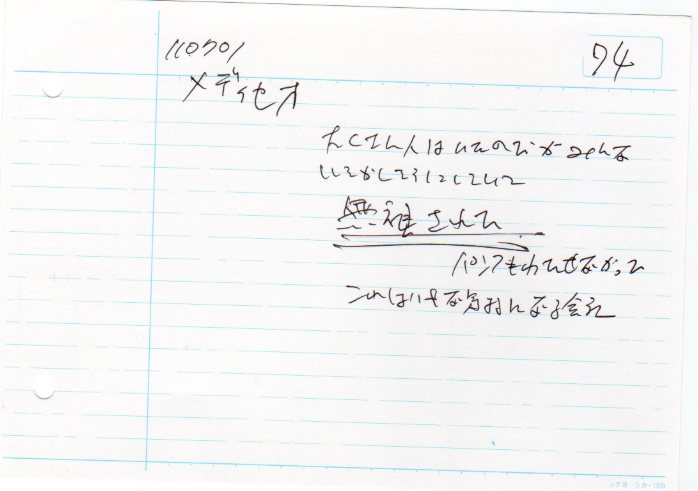 110701
74
メディセオ
たくさん人はいたのだがみんな
いそがしそうにしていて
無視された
パンフもわたせなかった
これはいやな気持になる会社
コクヨ シカ-13B